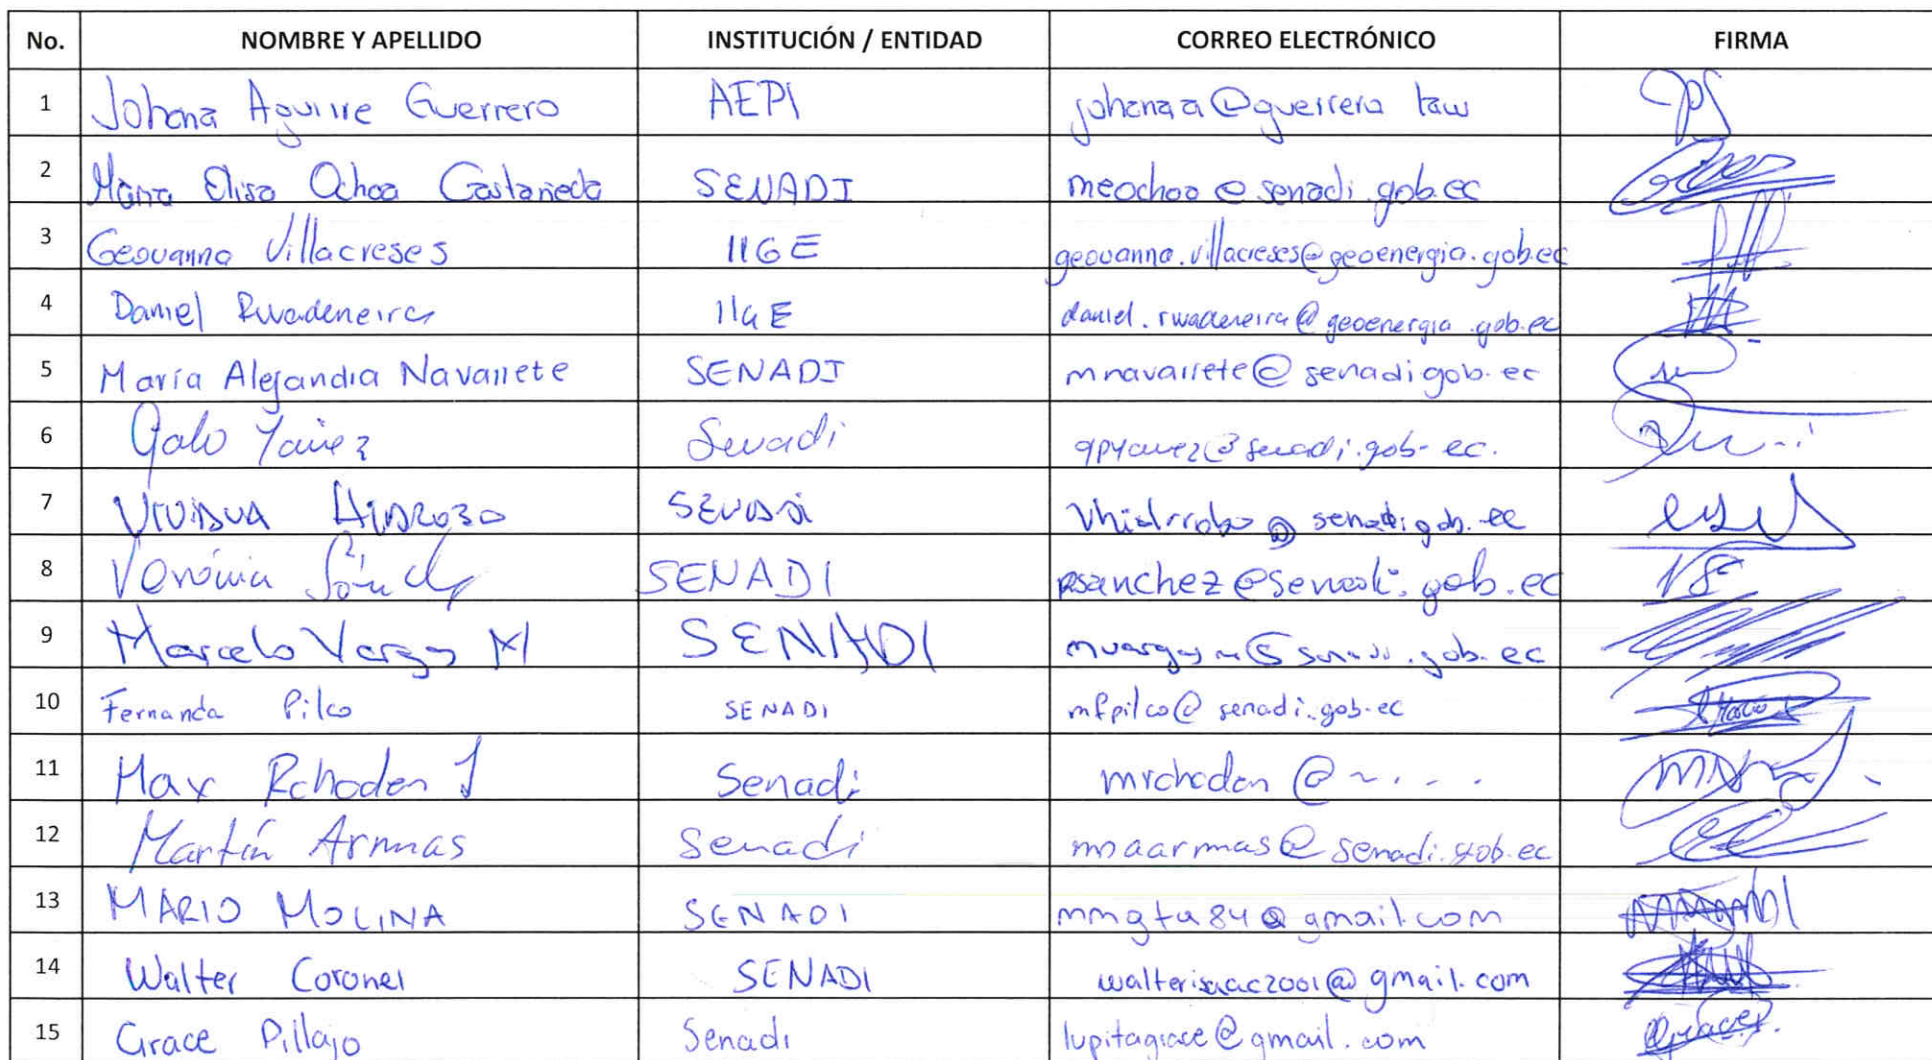 No. NOMBRE Y APELLIDO INSTITUCIÓN / ENTIDAD CORREO ELECTRÓNICO FIRMA
1 Johana Aguirre Guerrero AEPI johanaa@guerrero law
2 María Elisa Ochoa Castañeda SENADI meochoa@senadi.gob.ec
3 Geovanna Villacreses IIGE geovanna.villacreses@geoenergia.gob.ec
4 Daniel Rivadeneira IIGE daniel.rivadeneira@geoenergia.gob.ec
5 María Alejandra Navarrete SENADI mnavarrete@senadi gob.ec
6 Galo Yánez Senadi gpyanez@senadi.gob-ec.
7 Viviana Hidrobo SENADI vhidrobo@senadi.gob.ec
8 Verónica SENADI @senadi.gob.ec
9 Marcelo Vargas M SENADI mvargasm@senadi.gob.ec
10 Fernanda Pilco SENADI mfpilco@senadi.gob.ec
11 Max Senadi @
12 Martín Armas Senadi maarmas@senadi.gob.ec
13 MARIO MOLINA SENADI mmgta84@gmail.com
14 Walter Coronel SENADI walterisaac2001@gmail.com
15 Grace Pillajo Senadi lupitagrace@gmail.com